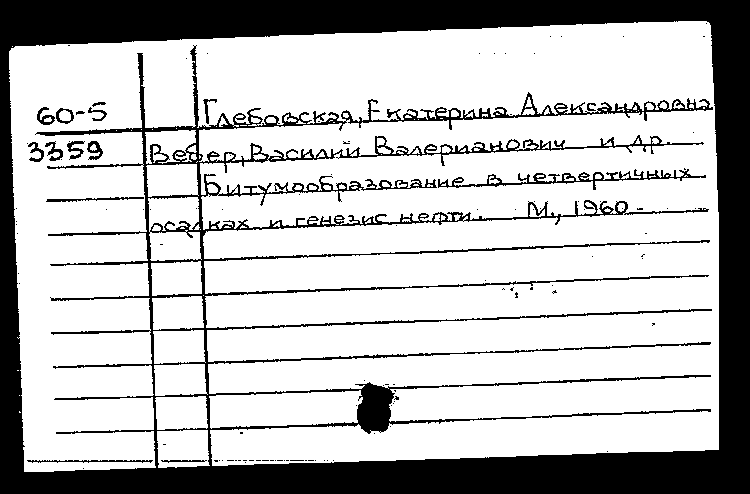 60-5 Глебовская, Екатерина Александровна
3359 Вебер, Василий Валерианович и др.
Битумообразование в четвертичных
осадках и генезис нефти. М., 1960-